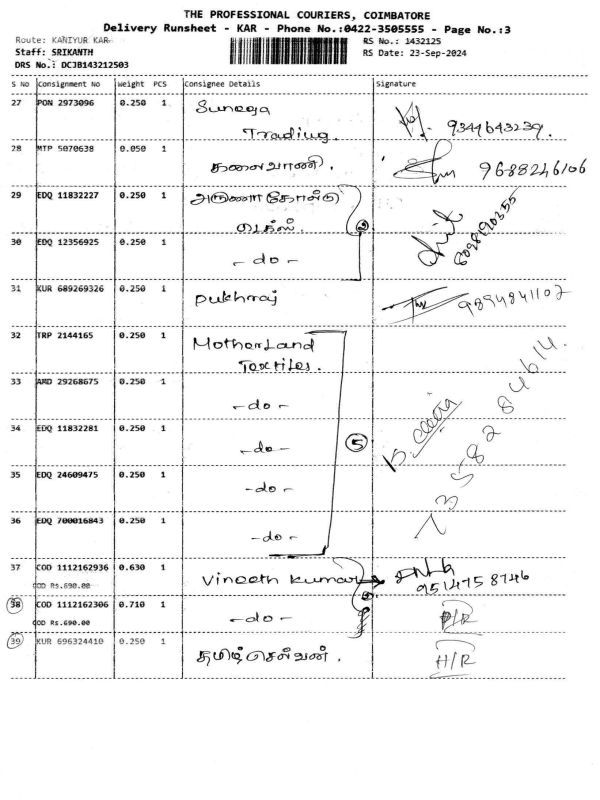 THE PROFESSIONAL COURIERS, COIMBATORE
Delivery Runsheet - KAR - Phone No.:0422-3505555 - Page No.:3
Route: KANIYUR KAR
Staff: SRIKANTH
DRS No.: DCJB143212503
RS No.: 1432125
RS Date: 23-Sep-2024
S No Consignment No Weight PCS Consignee Details Signature
27 PON 2973096 0.250 1 Sunega
Trading. 9344643239.
28 MTP 5070638 0.050 1 கலைவாணி. 9688246106
29 EDQ 11832227 0.250 1 அருணா கோல்டு
டெக்ஸ். 2 8098190355
30 EDQ 12356925 0.250 1 - do -
31 KUR 689269326 0.250 1 Pukhraj 9894841107
32 TRP 2144165 0.250 1 MotherLand
Textiles.
33 AMD 29268675 0.250 1 - do -
34 EDQ 11832281 0.250 1 - do - 5
35 EDQ 24609475 0.250 1 - do -
36 EDQ 700016843 0.250 1 - do -
7358284614.
37 COD 1112162936 0.630 1 Vineeth Kumar 9514758746
COD Rs.690.00
38 COD 1112162306 0.710 1 - do - P/R
COD Rs.690.00
39 KUR 696324410 0.250 1 தமிழ் செல்வன். H/R